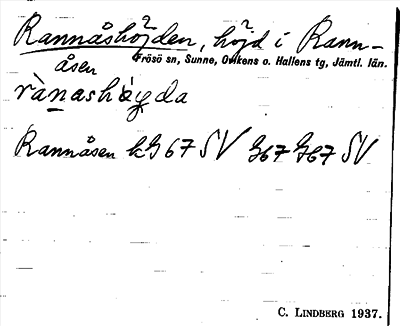 Rannåshöjden, höjd i Rann-
åsen
Frösö sn, Sunne, Ovikens o. Hallens tg, Jämtl. län.
rànashǿgda
Rannåsen kG 67 SV G67 G67 SV
C. LINDBERG 1937.